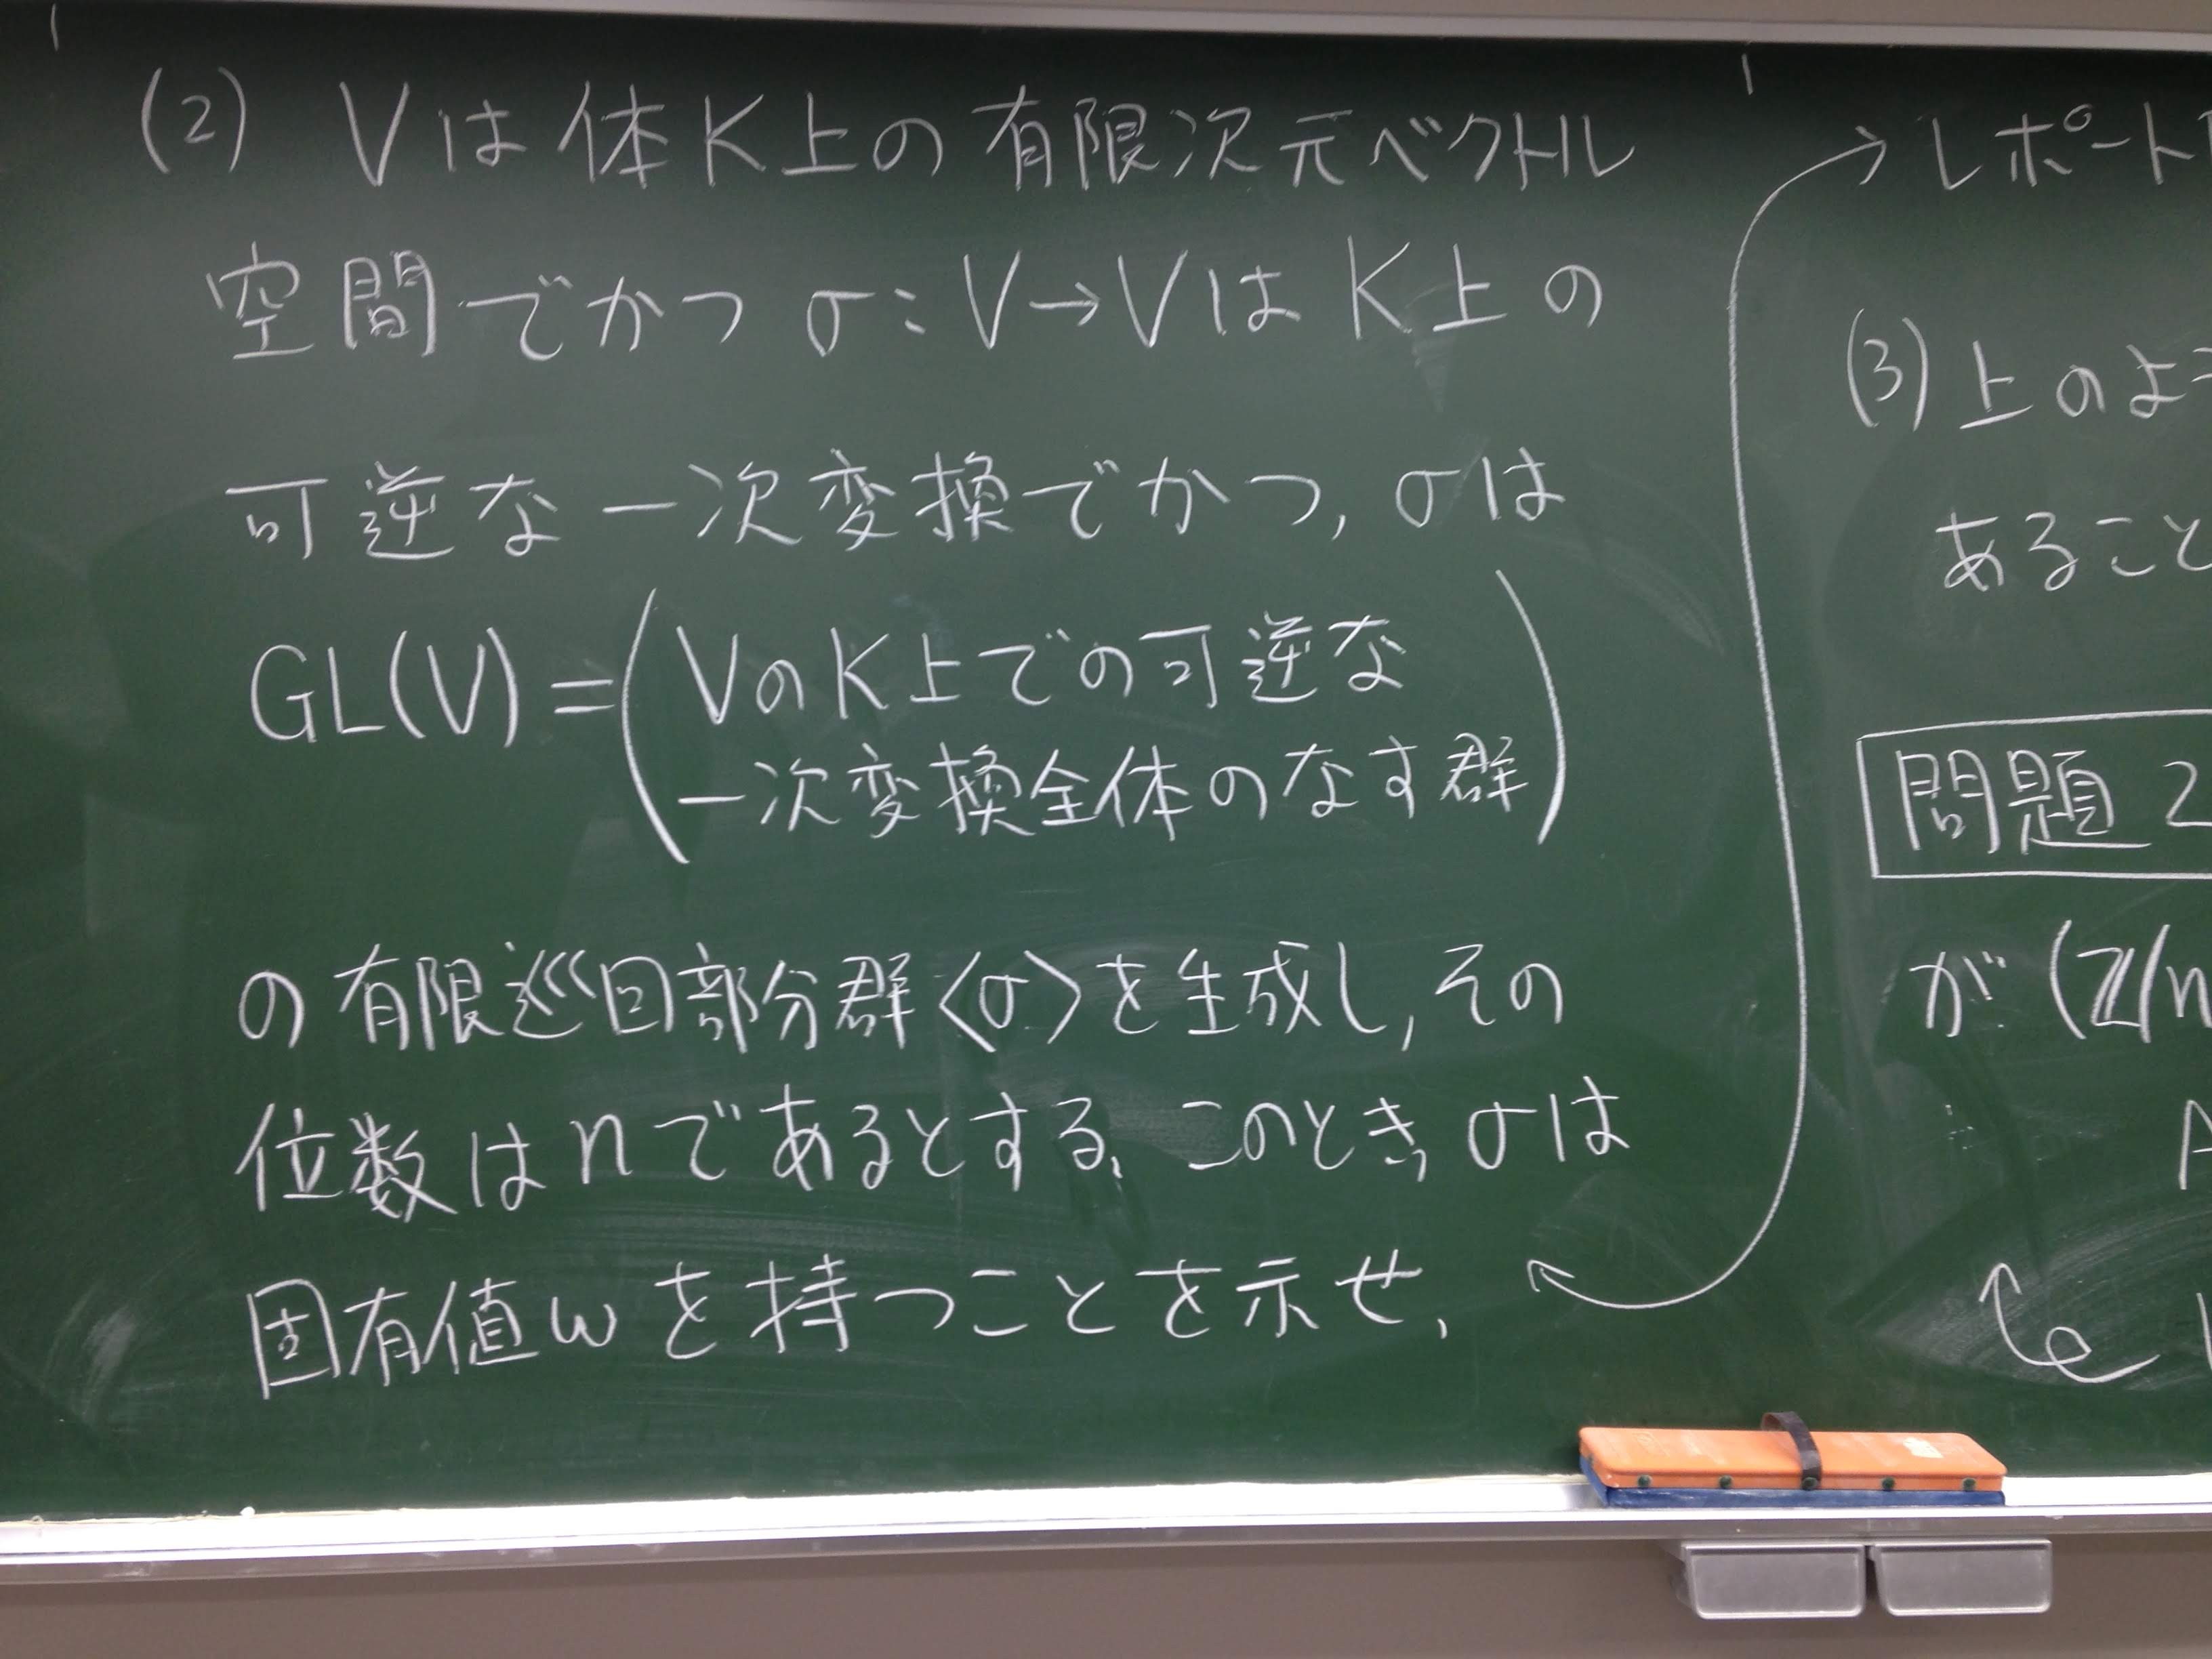 (2) Vは体K上の有限次元ベクトル
空間でかつ σ: V→VはK上の
可逆な一次変換でかつ, σは
GL(V) = (VのK上での可逆な
一次変換全体のなす群)
の有限巡回部分群<σ>を生成し, その
位数はnであるとする. このとき, σは
固有値ωを持つことを示せ.
→レポート
(3) 上のよ
あること
問題 2
が (ℤ/n